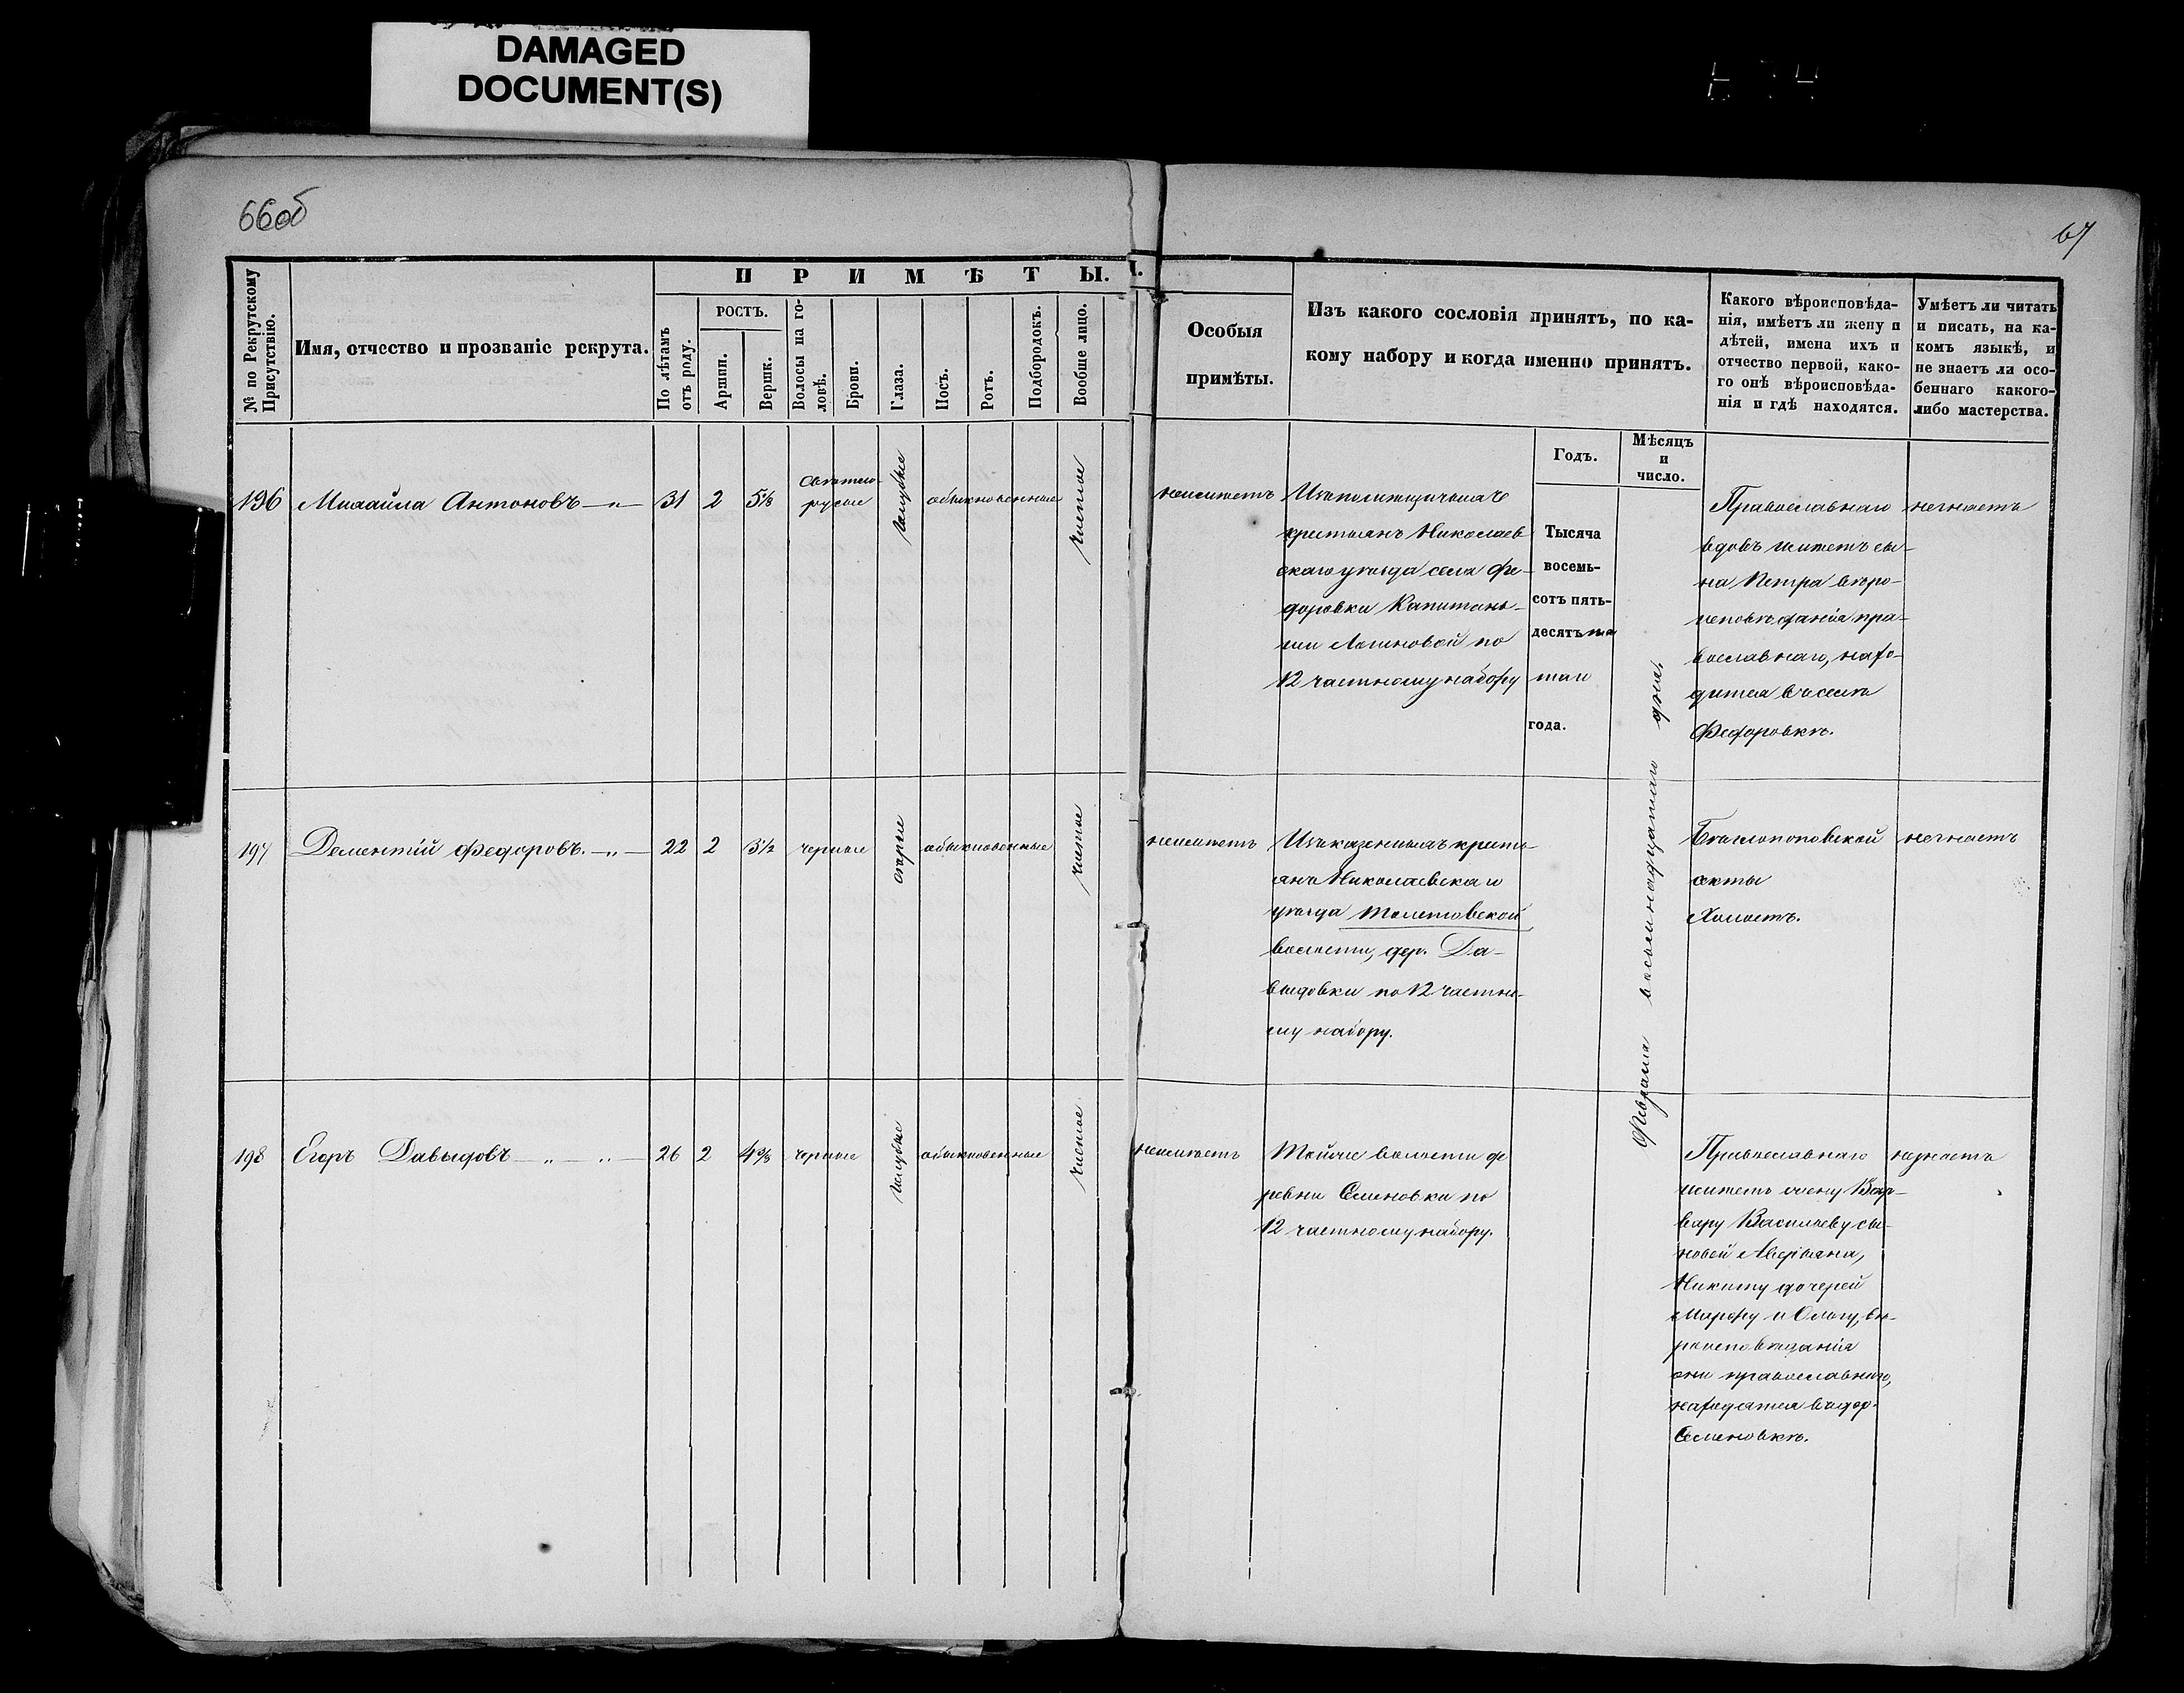 DAMAGED
DOCUMENT(S)
66об
67
№ по Рекрутскому
Присутствію.
Имя, отчество и прозваніе рекрута.
ПРИМѢТЫ.
По лѣтамъ
отъ роду.
РОСТЪ.
Аршин.
Вершк.
Волосы на го-
ловѣ.
Брови.
Глаза.
Носъ.
Ротъ.
Подбородокъ.
Вообще лицо.
Особыя
примѣты.
Изъ какого сословія принятъ, по ка-
кому набору и когда именно принятъ.
Какого вѣроисповѣда-
нія, имѣетъ ли жену и
дѣтей, имена ихъ и
отчество первой, како-
го онѣ вѣроисповѣда-
нія и гдѣ находятся.
Умѣетъ ли читать
и писать, на ка-
комъ языкѣ, и
не знаетъ ли осо-
беннаго какого-
либо мастерства.
Годъ.
Мѣсяцъ
и
число.
196 Михайла Антоновъ 31 2 5⅛
свѣтло-
русые
голубые
обыкновенные
чистое
неимѣетъ
Изъ помѣщичьихъ
крестьянъ Николаев
скаго уѣзда села Фе-
доровки Капитань-
ши по
12 частному набору
Тысяча
восемь-
сотъ пять-
десятъ пя
таго
года.
Февраля восемнадцатаго дня
Православнаго
вдовъ имѣетъ сы-
на Петра вѣро-
исповѣданія пра-
вославнаго, нахо-
дится въ селѣ
Федоровкѣ.
незнаетъ
197 Дементій Федоровъ. 22 2 3½ черные
сѣрые
обыкновенные
чистое
неимѣетъ
Изъ казенныхъ кресть
янъ Николаевскаго
уѣзда
волости, дер. Да-
выдовки по 12 частно-
му набору.
Бѣглопоповской
секты
Холостъ.
незнаетъ
198 Егоръ Давыдовъ 26 2 4⅜ черные
голубые
обыкновенные
чистое
неимѣетъ
Тойже волости де
ревни Семеновки по
12 частному набору.
Православнаго
имѣетъ жену Вар-
вару Васильеву сы-
новей Аверьяна,
Никиту дочерей
Марфу и Ольгу, вѣ-
роисповѣданія
они православнаго,
находятся въ дер.
Семеновкѣ.
незнаетъ